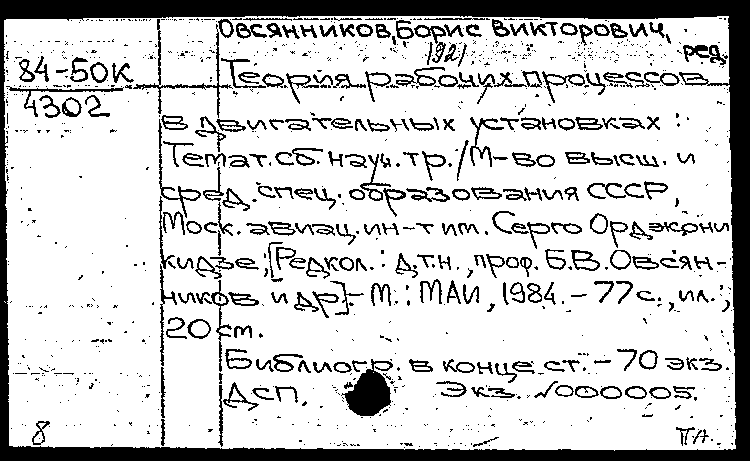 Овсянников, Борис Викторович,
1921
ред.
84-50К
4302
Теория рабочих процессов
в двигательных установках :
Темат. сб. науч. тр. / М-во высш. и
сред. спец. образования СССР,
Моск. авиац. ин-т им. Серго Орджони
кидзе; [Редкол.: д.т.н., проф. Б.В. Овсян-
ников и др]. - М.: МАИ, 1984. - 77 с., ил.;
20 см.
Библиогр. в конце ст. - 70 экз.
ДСП. Экз. №000005.
8